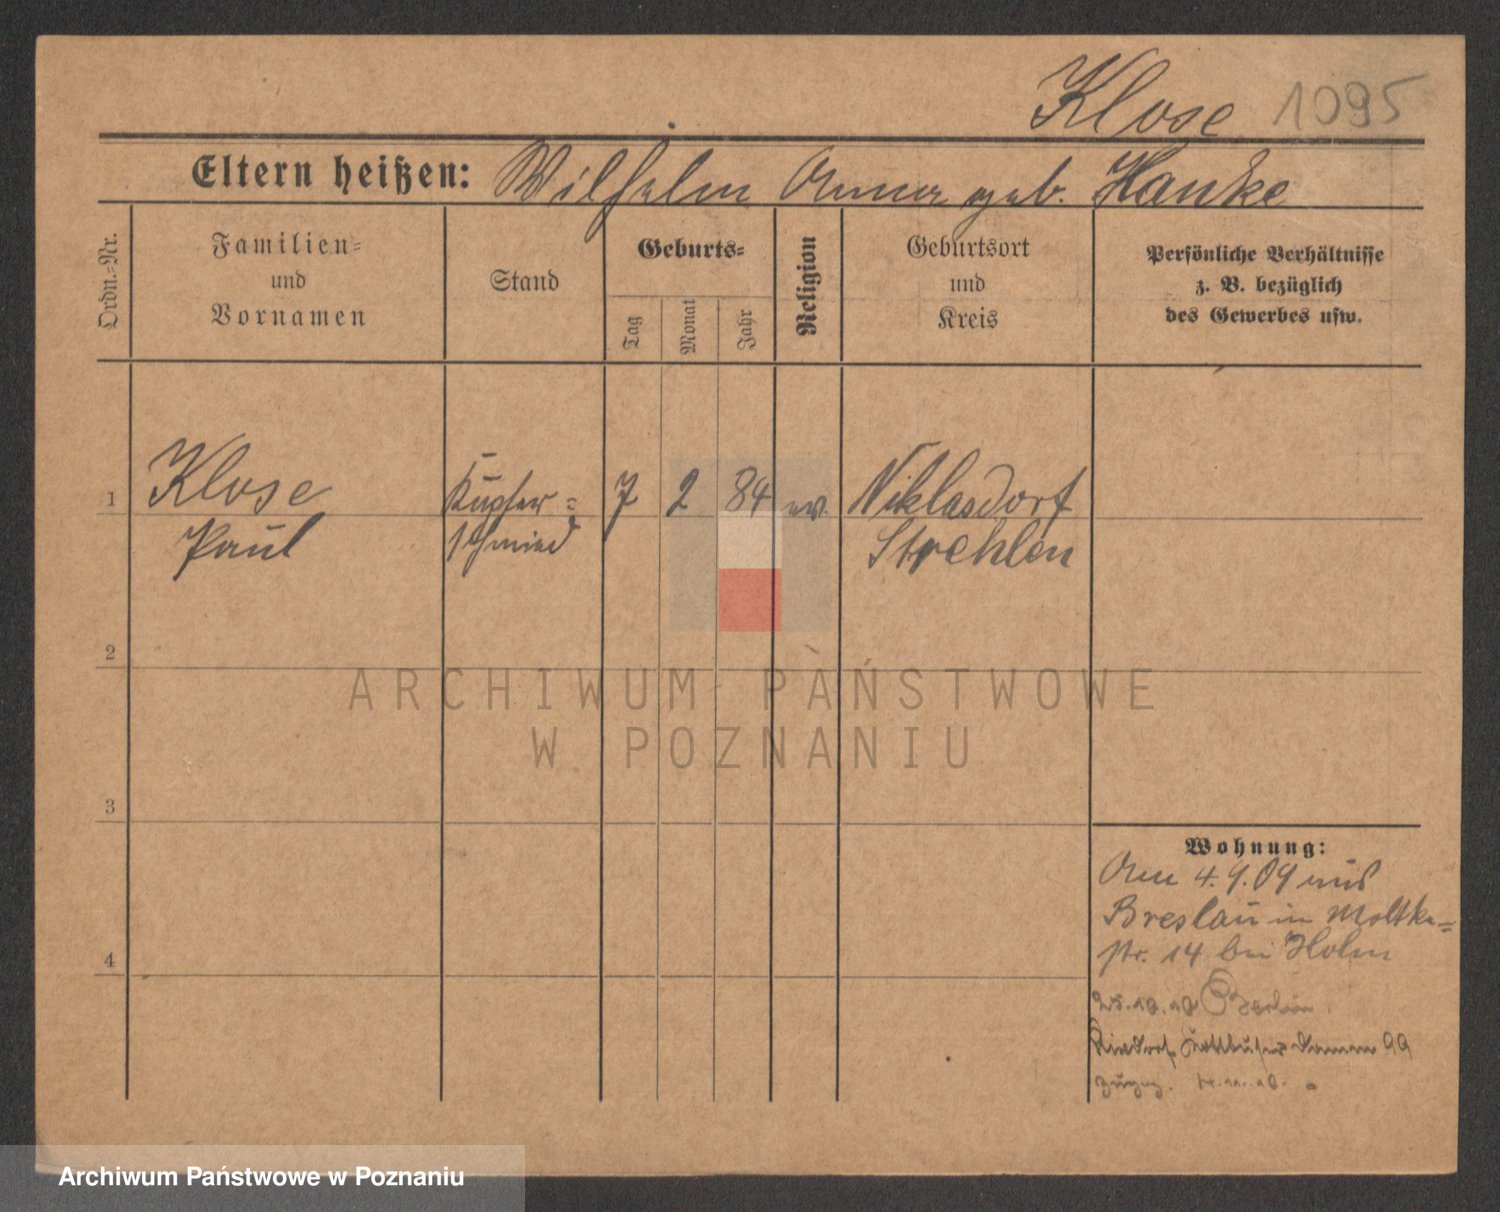 Klose 1095
Eltern heißen: Wilhelm Anna geb. Hanke
Ordn.=Nr.
Familien=
und
Vornamen
Stand
Geburts=
Tag
Monat
Jahr
Religion
Geburtsort
und
Kreis
Persönliche Verhältnisse
z. B. bezüglich
des Gewerbes usw.
1
Klose
Paul
Kupfer=
schmied
7
2
84
ev.
Niklasdorf
Strehlen
2
3
4
ARCHIWUM PAŃSTWOWE
W POZNANIU
Wohnung:
Am 4.9.09 aus
Breslau in Moltke=
str. 14 bei Holm
25.10.10 Berlin
Rixdorf Kottbuser Damm 99
zugez.
Archiwum Państwowe w Poznaniu